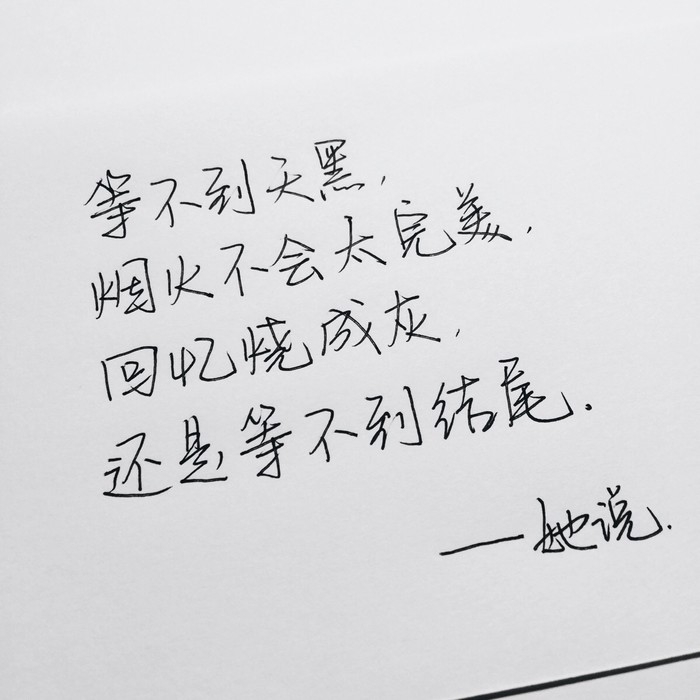 等不到天黑,
烟火不会太完美,
回忆烧成灰,
还是等不到结尾.
——她说.